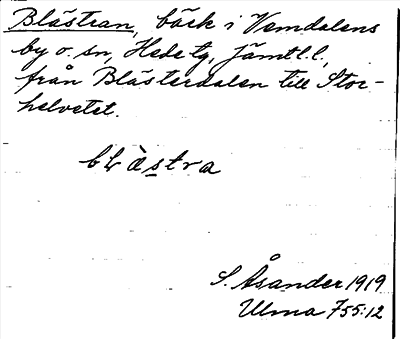 Blästran, bäck i Vemdalens
by o. sn, Hede tg, Jämtl. l.,
från Blästerdalen till Stor-
helvetet.
blàstra
S. Åsander 1919
Ulma 755:12